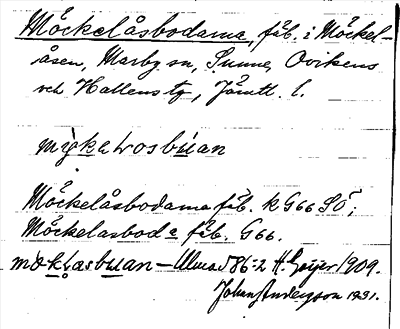 Möckelåsbodarna, fäb. i Möckel-
åsen, Marby sn, Sunne, Ovikens
och Hallens tg, Jämtl. l.
Möckelåsbodarna fäb. k G66 SÖ;
Möckelasboda fäb. G66.
Ulma 586:2 H. Geijer 1909.
Johan Andersson 1931.